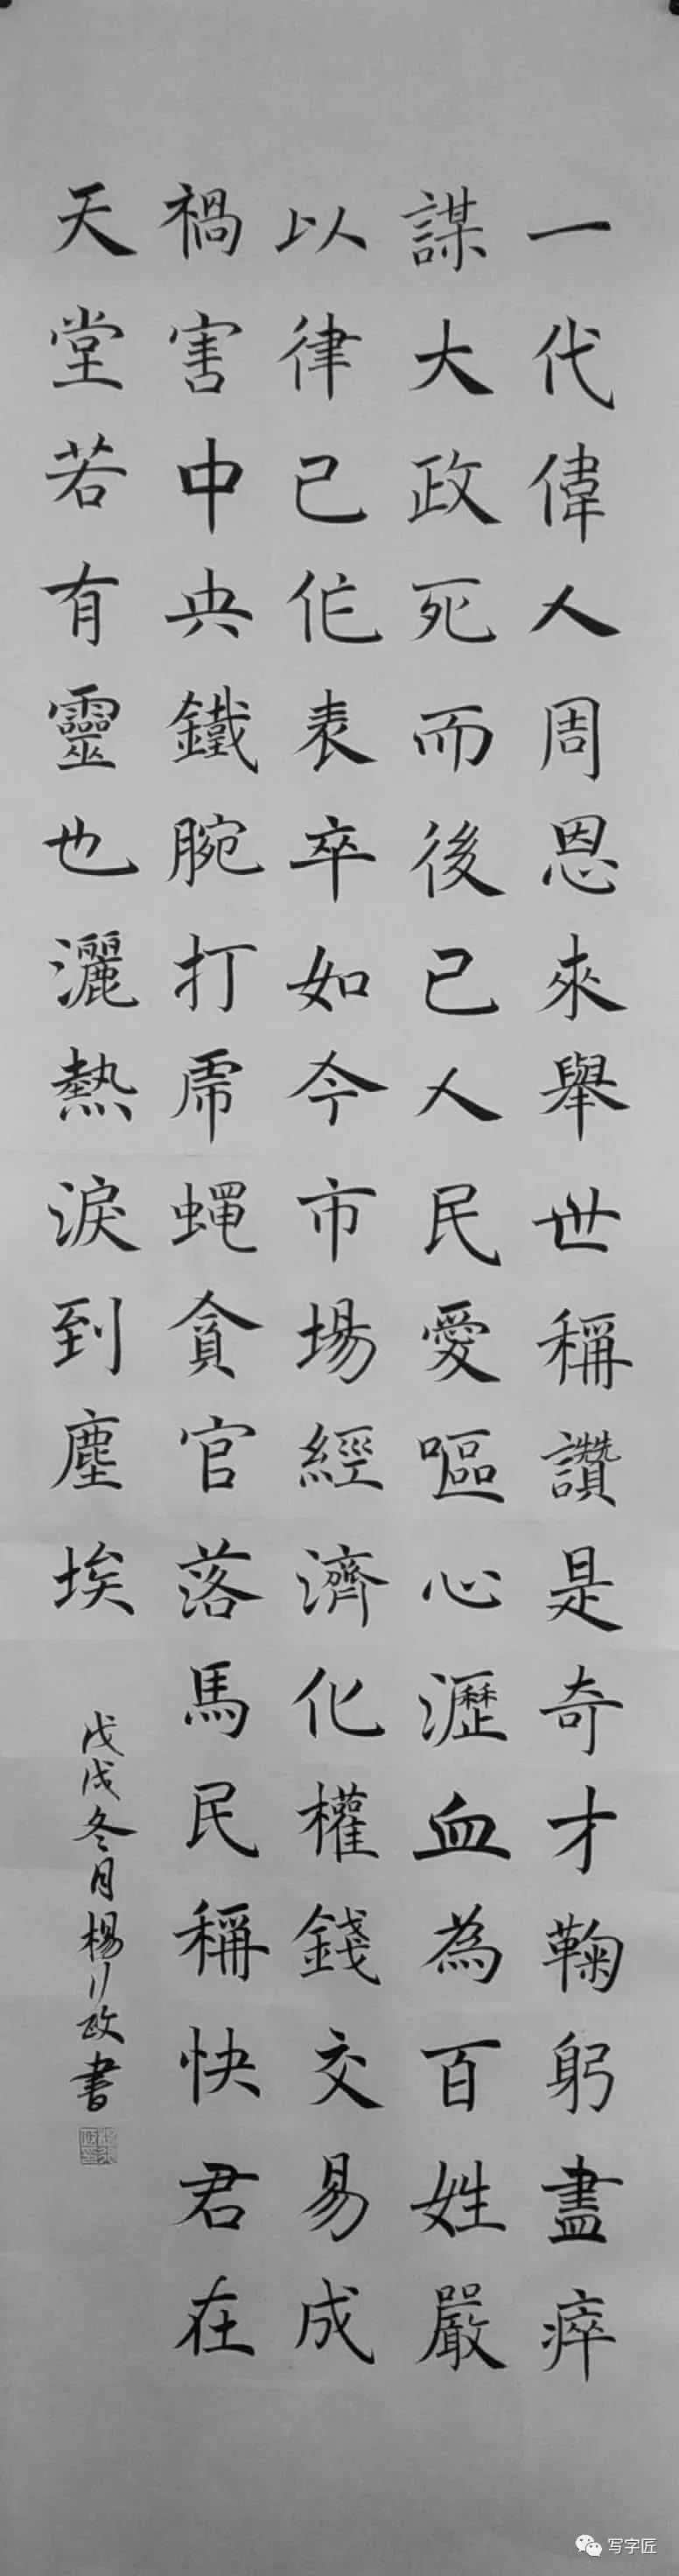 一代偉人周恩來舉世稱讚是奇才鞠躬盡瘁
謀大政死而後已人民愛嘔心瀝血為百姓嚴
以律己作表率如今市場經濟化權錢交易成
禍害中央鐵腕打虎蠅貪官落馬民稱快君在
天堂若有靈也灑熱淚到塵埃
戊戌冬月楊行政書
写字匠